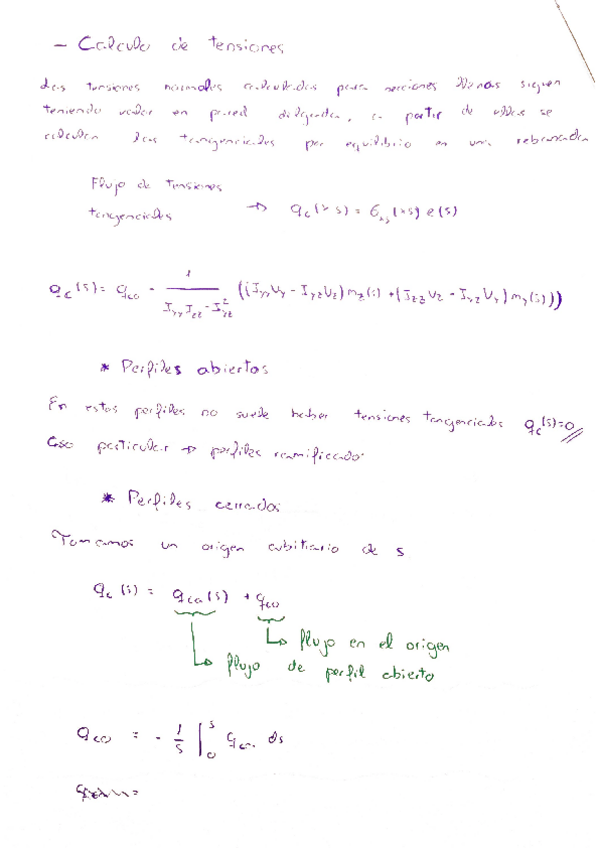 - Calculo de tensiones
Las tensiones normales calculadas para secciones llenas siguen
teniendo valor en pared delgada, a partir de ellas se
calculan las tangenciales por equilibrio en una rebanada
Flujo de tensiones
tangenciales → q_c(x s) = σ_xs(xs) e(s)
q_c(s) = q_co - 1/(I_yy I_zz - I_yz²) ((I_yy V_y - I_yz V_z) m_z(s) + (I_zz V_z - I_yz V_y) m_y(s)))
* Perfiles abiertos
En estos perfiles no suele haber tensiones tangenciales q_c(s)=0
Caso particular → perfiles ramificado
* Perfiles cerrados
Tomamos un origen arbitrario de s
q_c(s) = q_ca(s) + q_co
↳ flujo en el origen
↳ flujo de perfil abierto
q_co = - 1/s ∫_0^s q_ca ds